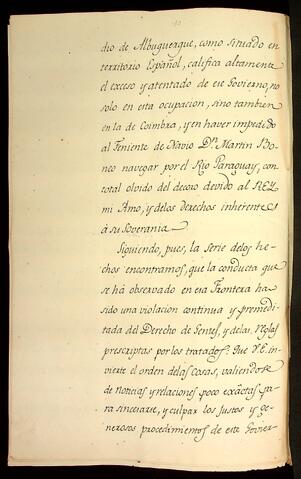 dio de Albuquerque, como situado en
territorio Español, califica altamente
el exceso y atentado de ese Govierno, no
solo en esta ocupacion, sino tambien
en la de Coimbra, y en haver impedido
al Teniente de Navio Dn. Martin Bo-
neo navegar por el Rio Paraguay, con
total olvido del decoro devido al REY
mi Amo, y de los derechos inherentes
á su Soverania.
Siguiendo, pues, la serie de los he-
chos encontramos, que la conducta que
se há observado en esa Frontera ha
sido una violacion continua y premedi-
tada del Derecho de Gentes, y de las reglas
prescriptas por los tratados: Que V.E. in-
vierte el orden de las Cosas, valiendose
de noticias y relaciones poco exâctas pa-
ra sincerarse, y culpar los justos y ge-
nerosos procedimientos de este Govier-